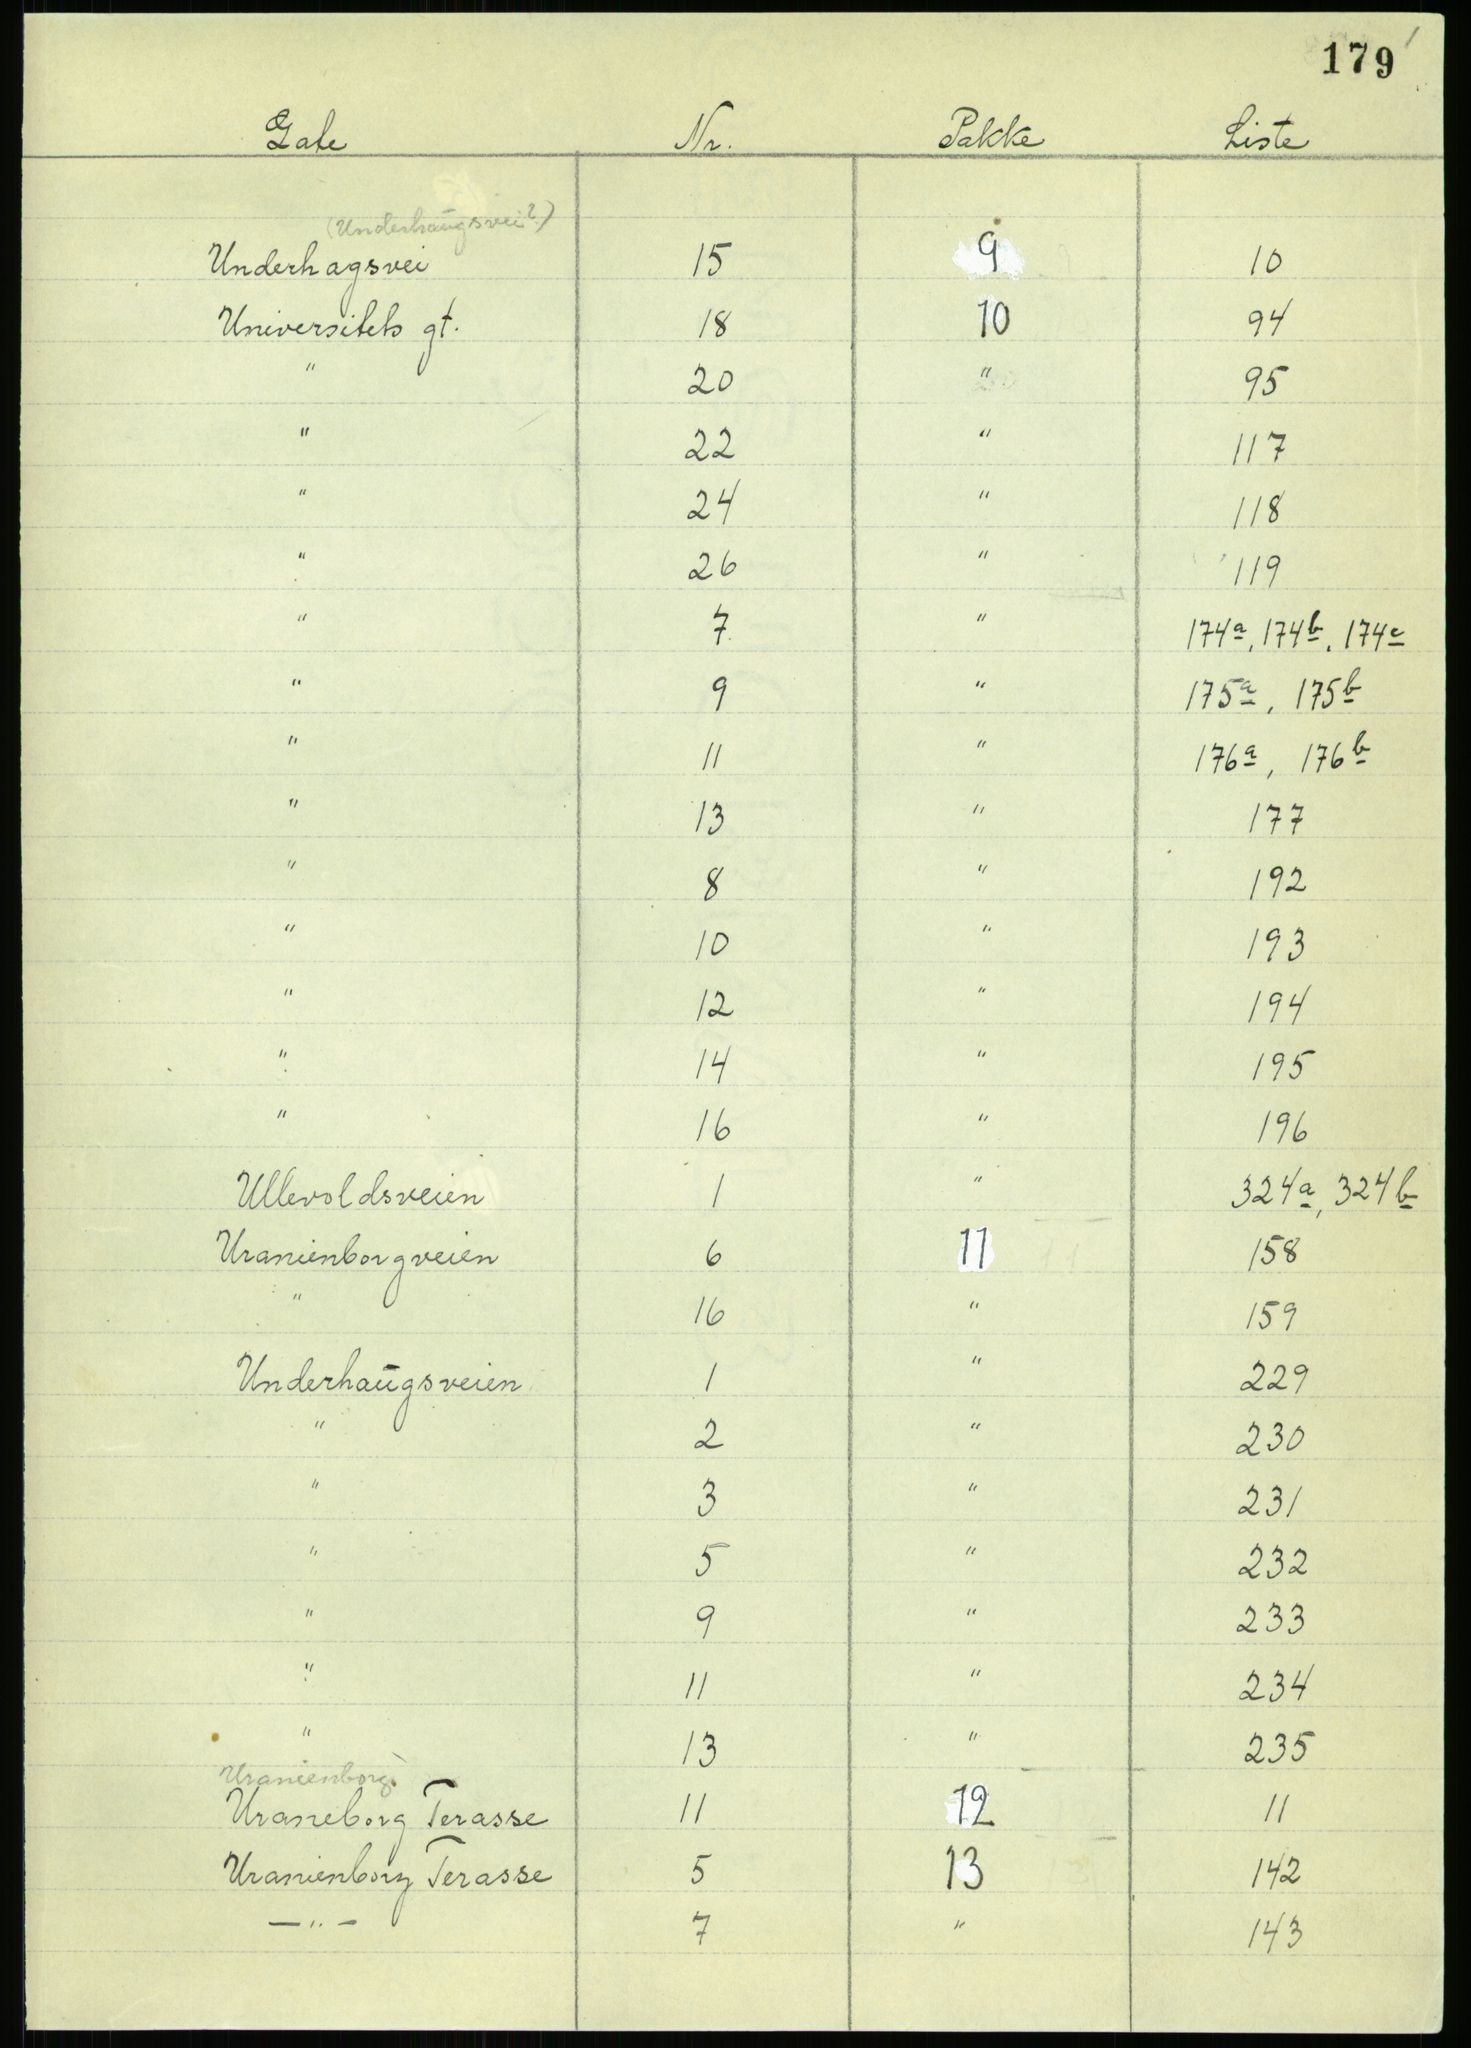 179
Gate Nr. Pakke Liste
(Underhaugsvei?)
Underhagsvei 15 9 10
Universitets gt. 18 10 94
" 20 " 95
" 22 " 117
" 24 " 118
" 26 " 119
" 7 " 174a, 174b, 174c
" 9 " 175a, 175b
" 11 " 176a, 176b
" 13 " 177
" 8 " 192
" 10 " 193
" 12 " 194
" 14 " 195
" 16 " 196
Ullevoldsveien 1 " 324a, 324b
Uranienborgveien 6 11 158
" 16 " 159
Underhaugsveien 1 " 229
" 2 " 230
" 3 " 231
" 5 " 232
" 9 " 233
" 11 " 234
" 13 " 235
Uranienborg
Uraneborg Terasse 11 12 11
Uranienborg Terasse 5 13 142
—"— 7 " 143